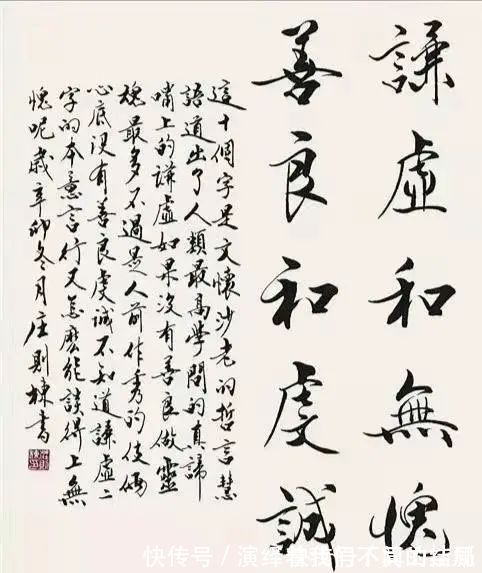 謙虛和無愧
善良和虔誠
這十個字是文懷沙老的哲言慧
語道出了人類最高學問的真諦
嘴上的謙虛如果沒有善良做靈
魂最多不過是人前作秀的伎倆
心底沒有善良虔誠不知道謙虛二
字的本意言行又怎麼能談得上無
愧呢歲辛卯冬月庄則棟書
快传号 / 演绎